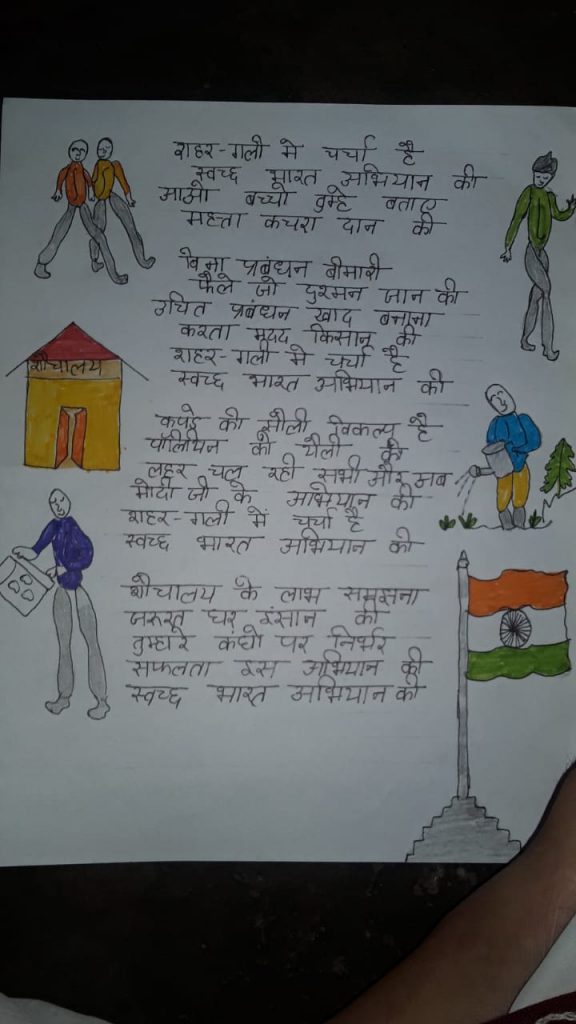 शहर-गली मे चर्चा है
स्वच्छ भारत अभियान की
आओ बच्चो तुम्हे बताए
महत्ता कचरा दान की
बिना प्रबंधन बीमारी
फैले जो दुश्मन जान की
उचित प्रबंधन खाद बनाना
करता मदद किसान की
शहर-गली मे चर्चा है
स्वच्छ भारत अभियान की
शौचालय
कपड़े की थैली विकल्प है
पॉलिथिन की थैली की
लहर चल रही सभी ओर अब
मोदी जी के अभियान की
शहर-गली में चर्चा है
स्वच्छ भारत अभियान की
शौचालय के लाभ समझना
जरूरत घर इंसान की
तुम्हारे कंधो पर निर्भर
सफलता इस अभियान की
स्वच्छ भारत अभियान की